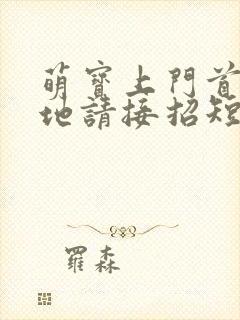 萌寶上門首
地請接招短
羅森